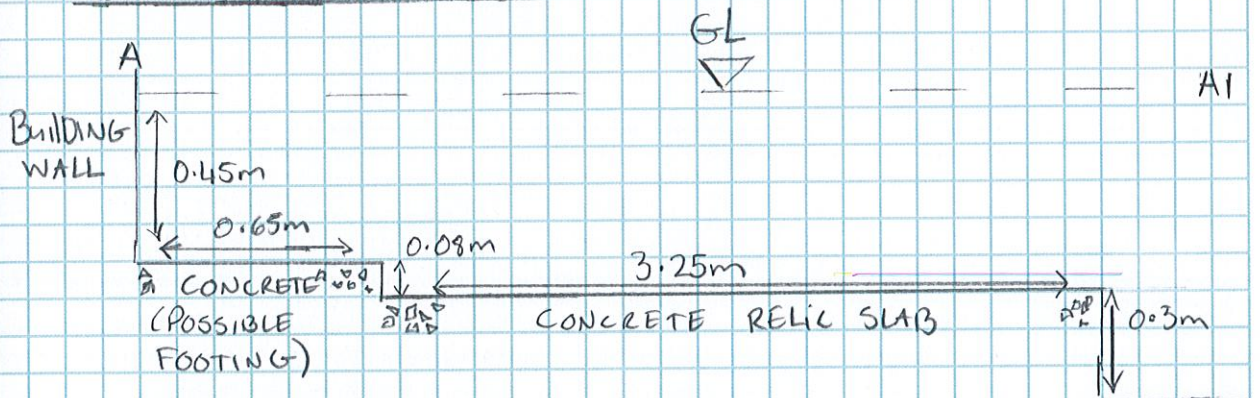 GL
A
A1
BUILDING
WALL
0.45m
0.65m
0.08m
3.25m
CONCRETE
(POSSIBLE
FOOTING)
CONCRETE RELIC SLAB
0.3m